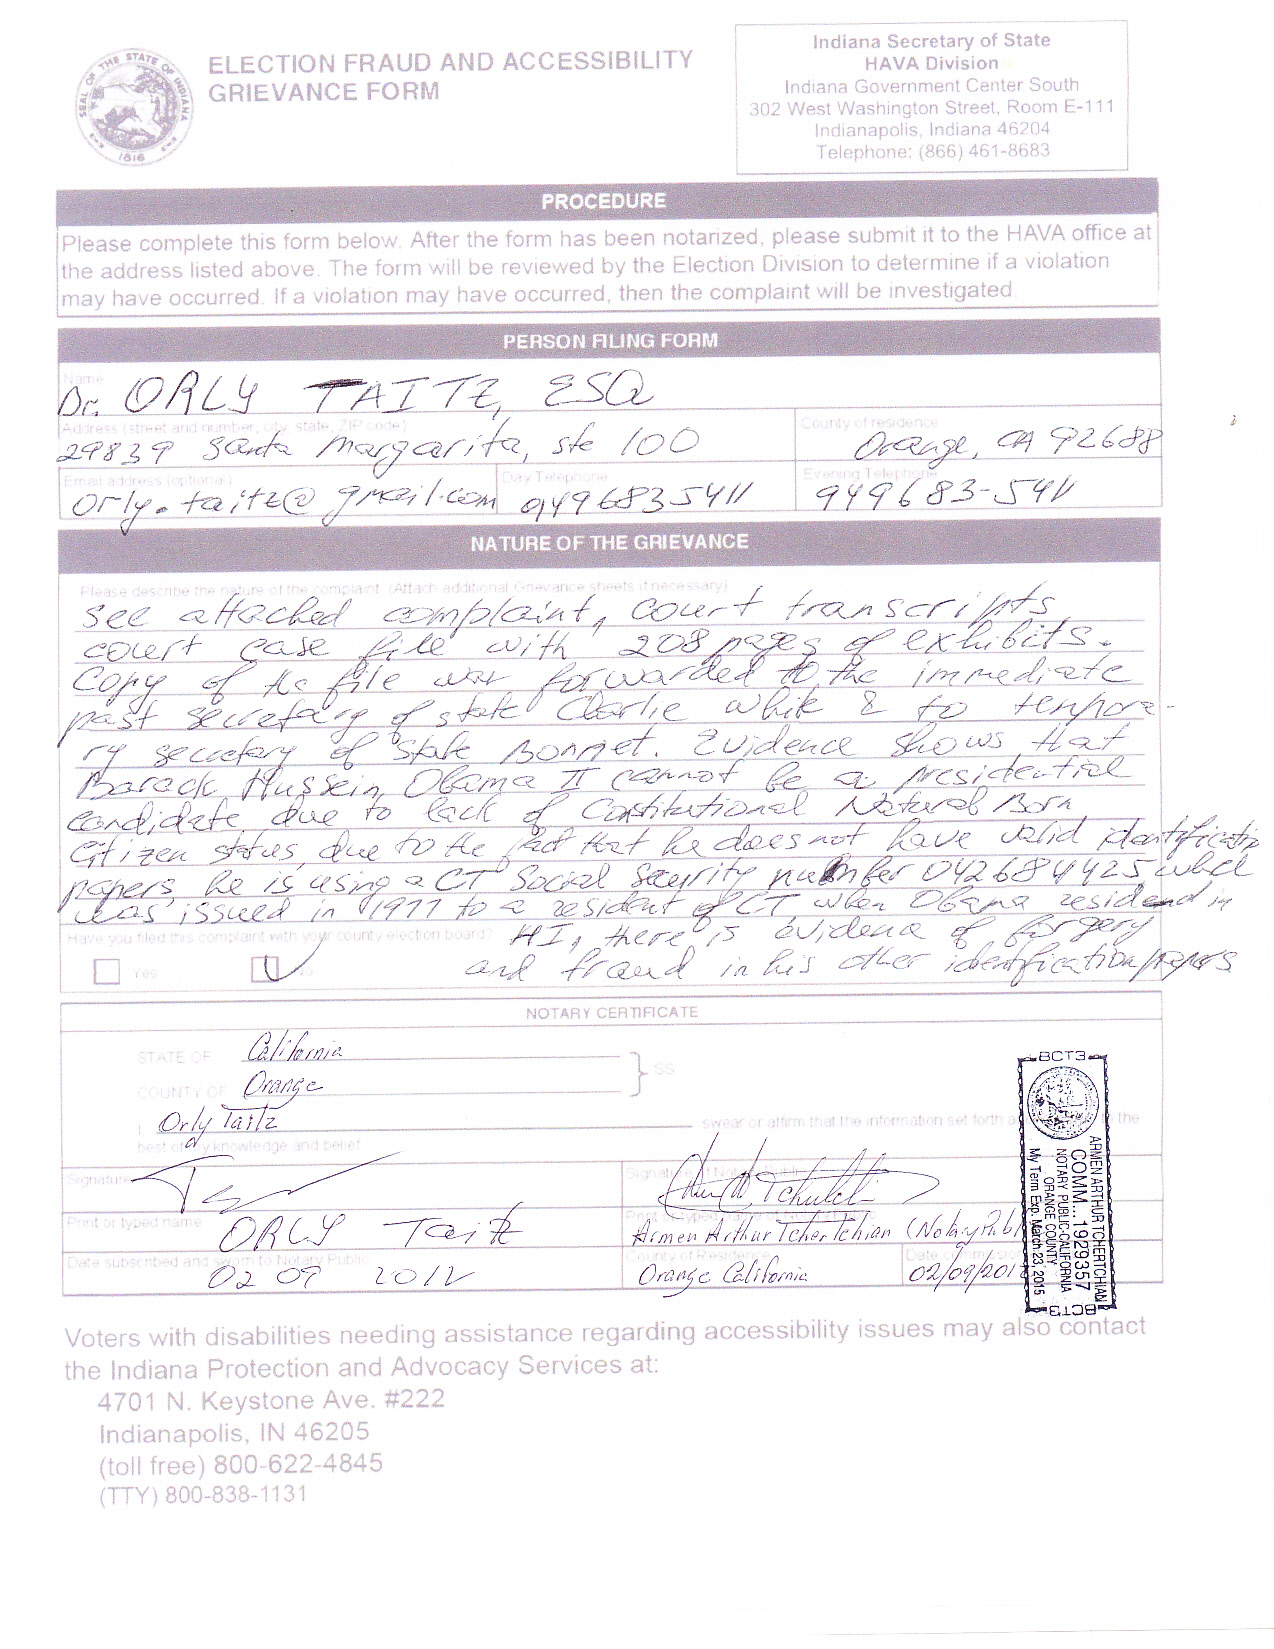 SEAL OF THE STATE OF INDIANA
1816
ELECTION FRAUD AND ACCESSIBILITY
GRIEVANCE FORM
Indiana Secretary of State
HAVA Division
Indiana Government Center South
302 West Washington Street, Room E-111
Indianapolis, Indiana 46204
Telephone: (866) 461-8683
PROCEDURE
Please complete this form below. After the form has been notarized, please submit it to the HAVA office at
the address listed above. The form will be reviewed by the Election Division to determine if a violation
may have occurred. If a violation may have occurred, then the complaint will be investigated.
PERSON FILING FORM
Name
Dr. ORLY TAITZ, ESQ
Address (street and number, city, state, ZIP code)
County of residence
29839 Santa Margarita, ste 100
Orange, CA 92688
Email address (optional)
Day Telephone
Evening Telephone
orly.taitz@gmail.com
949 683 5411
949683-5411
NATURE OF THE GRIEVANCE
Please describe the nature of the complaint (Attach additional Grievance sheets if necessary)
see attached complaint, court transcripts,
court case file with 208 pages of exhibits.
Copy of the file was forwarded to the immediate
past secretary of state Charlie White & to tempora-
ry secretary of State Bonnet. Evidence shows that
Barack Hussein Obama II cannot be a presidential
candidate due to lack of Constitutional Natural Born
Citizen status, due to the fact that he does not have valid identification
papers, he is using a CT Social Security number 042684425 which
was issued in 1977 to a resident of CT when Obama resided in
Have you filed this complaint with your county election board?
HI, there is evidence of forgery
Yes
No
and fraud in his other identification papers
NOTARY CERTIFICATE
STATE OF California
COUNTY OF Orange
SS
I, Orly Taitz swear or affirm that the information set forth the
best of my knowledge and belief
Signature
Signature of Notary Public
Print or typed name
ORLY Taitz
Armen Arthur Tchertchian (Notary Pub
Date subscribed and sworn to Notary Public
02 09 2012
County of Residence
Orange California
Date
02/09/201
BCT3
ARMEN ARTHUR TCHERTCHIAN
COMM... 1929357
NOTARY PUBLIC-CALIFORNIA
ORANGE COUNTY
My Term Exp. March 23, 2015
BCT3
Voters with disabilities needing assistance regarding accessibility issues may also contact
the Indiana Protection and Advocacy Services at:
4701 N. Keystone Ave. #222
Indianapolis, IN 46205
(toll free) 800-622-4845
(TTY) 800-838-1131